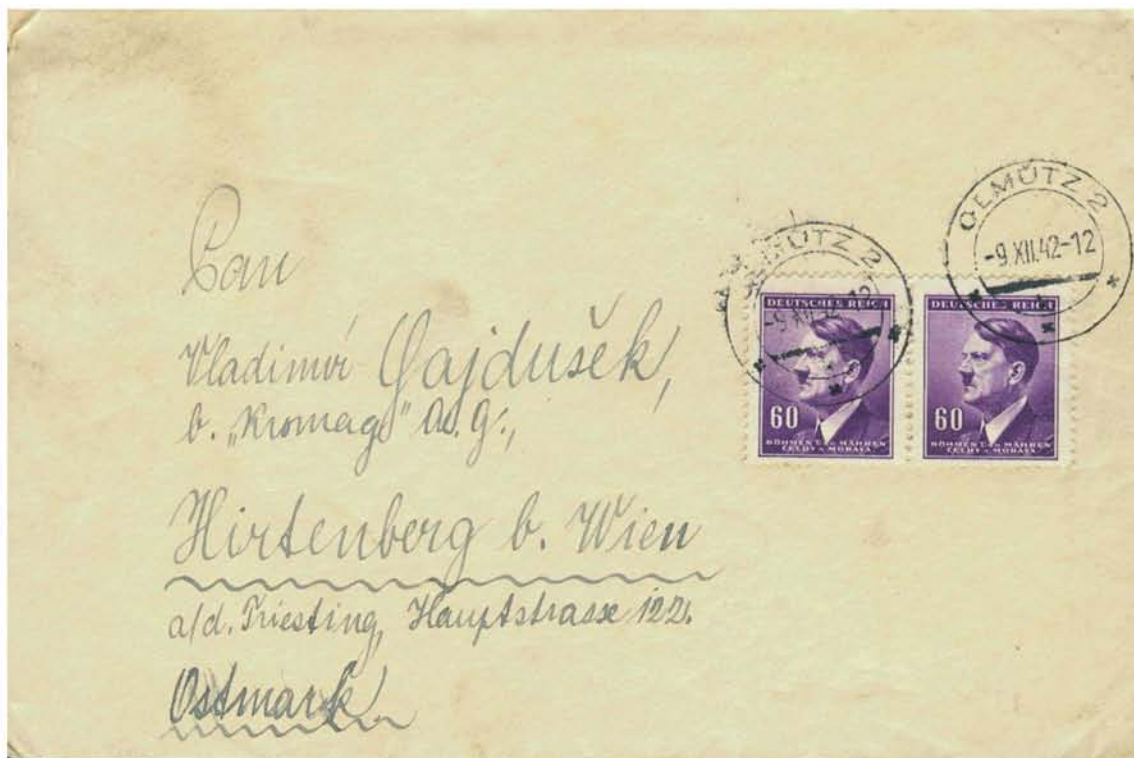 Pan
Vladimír Gajdušek,
b. „Kromag" A.G.,
Hirtenberg b. Wien
a/d. Triesting, Hauptstrasse 122.
Ostmark.
OLMÜTZ 2
-9.XII.42-12
OLMÜTZ 2
-9.XII.42-12
DEUTSCHES REICH
60
BÖHMEN U. MÄHREN
ČECHY A MORAVA
DEUTSCHES REICH
60
BÖHMEN U. MÄHREN
ČECHY A MORAVA